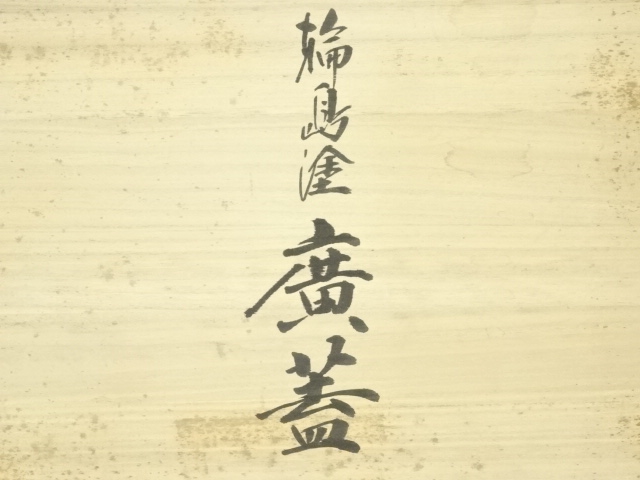 輪島塗廣蓋